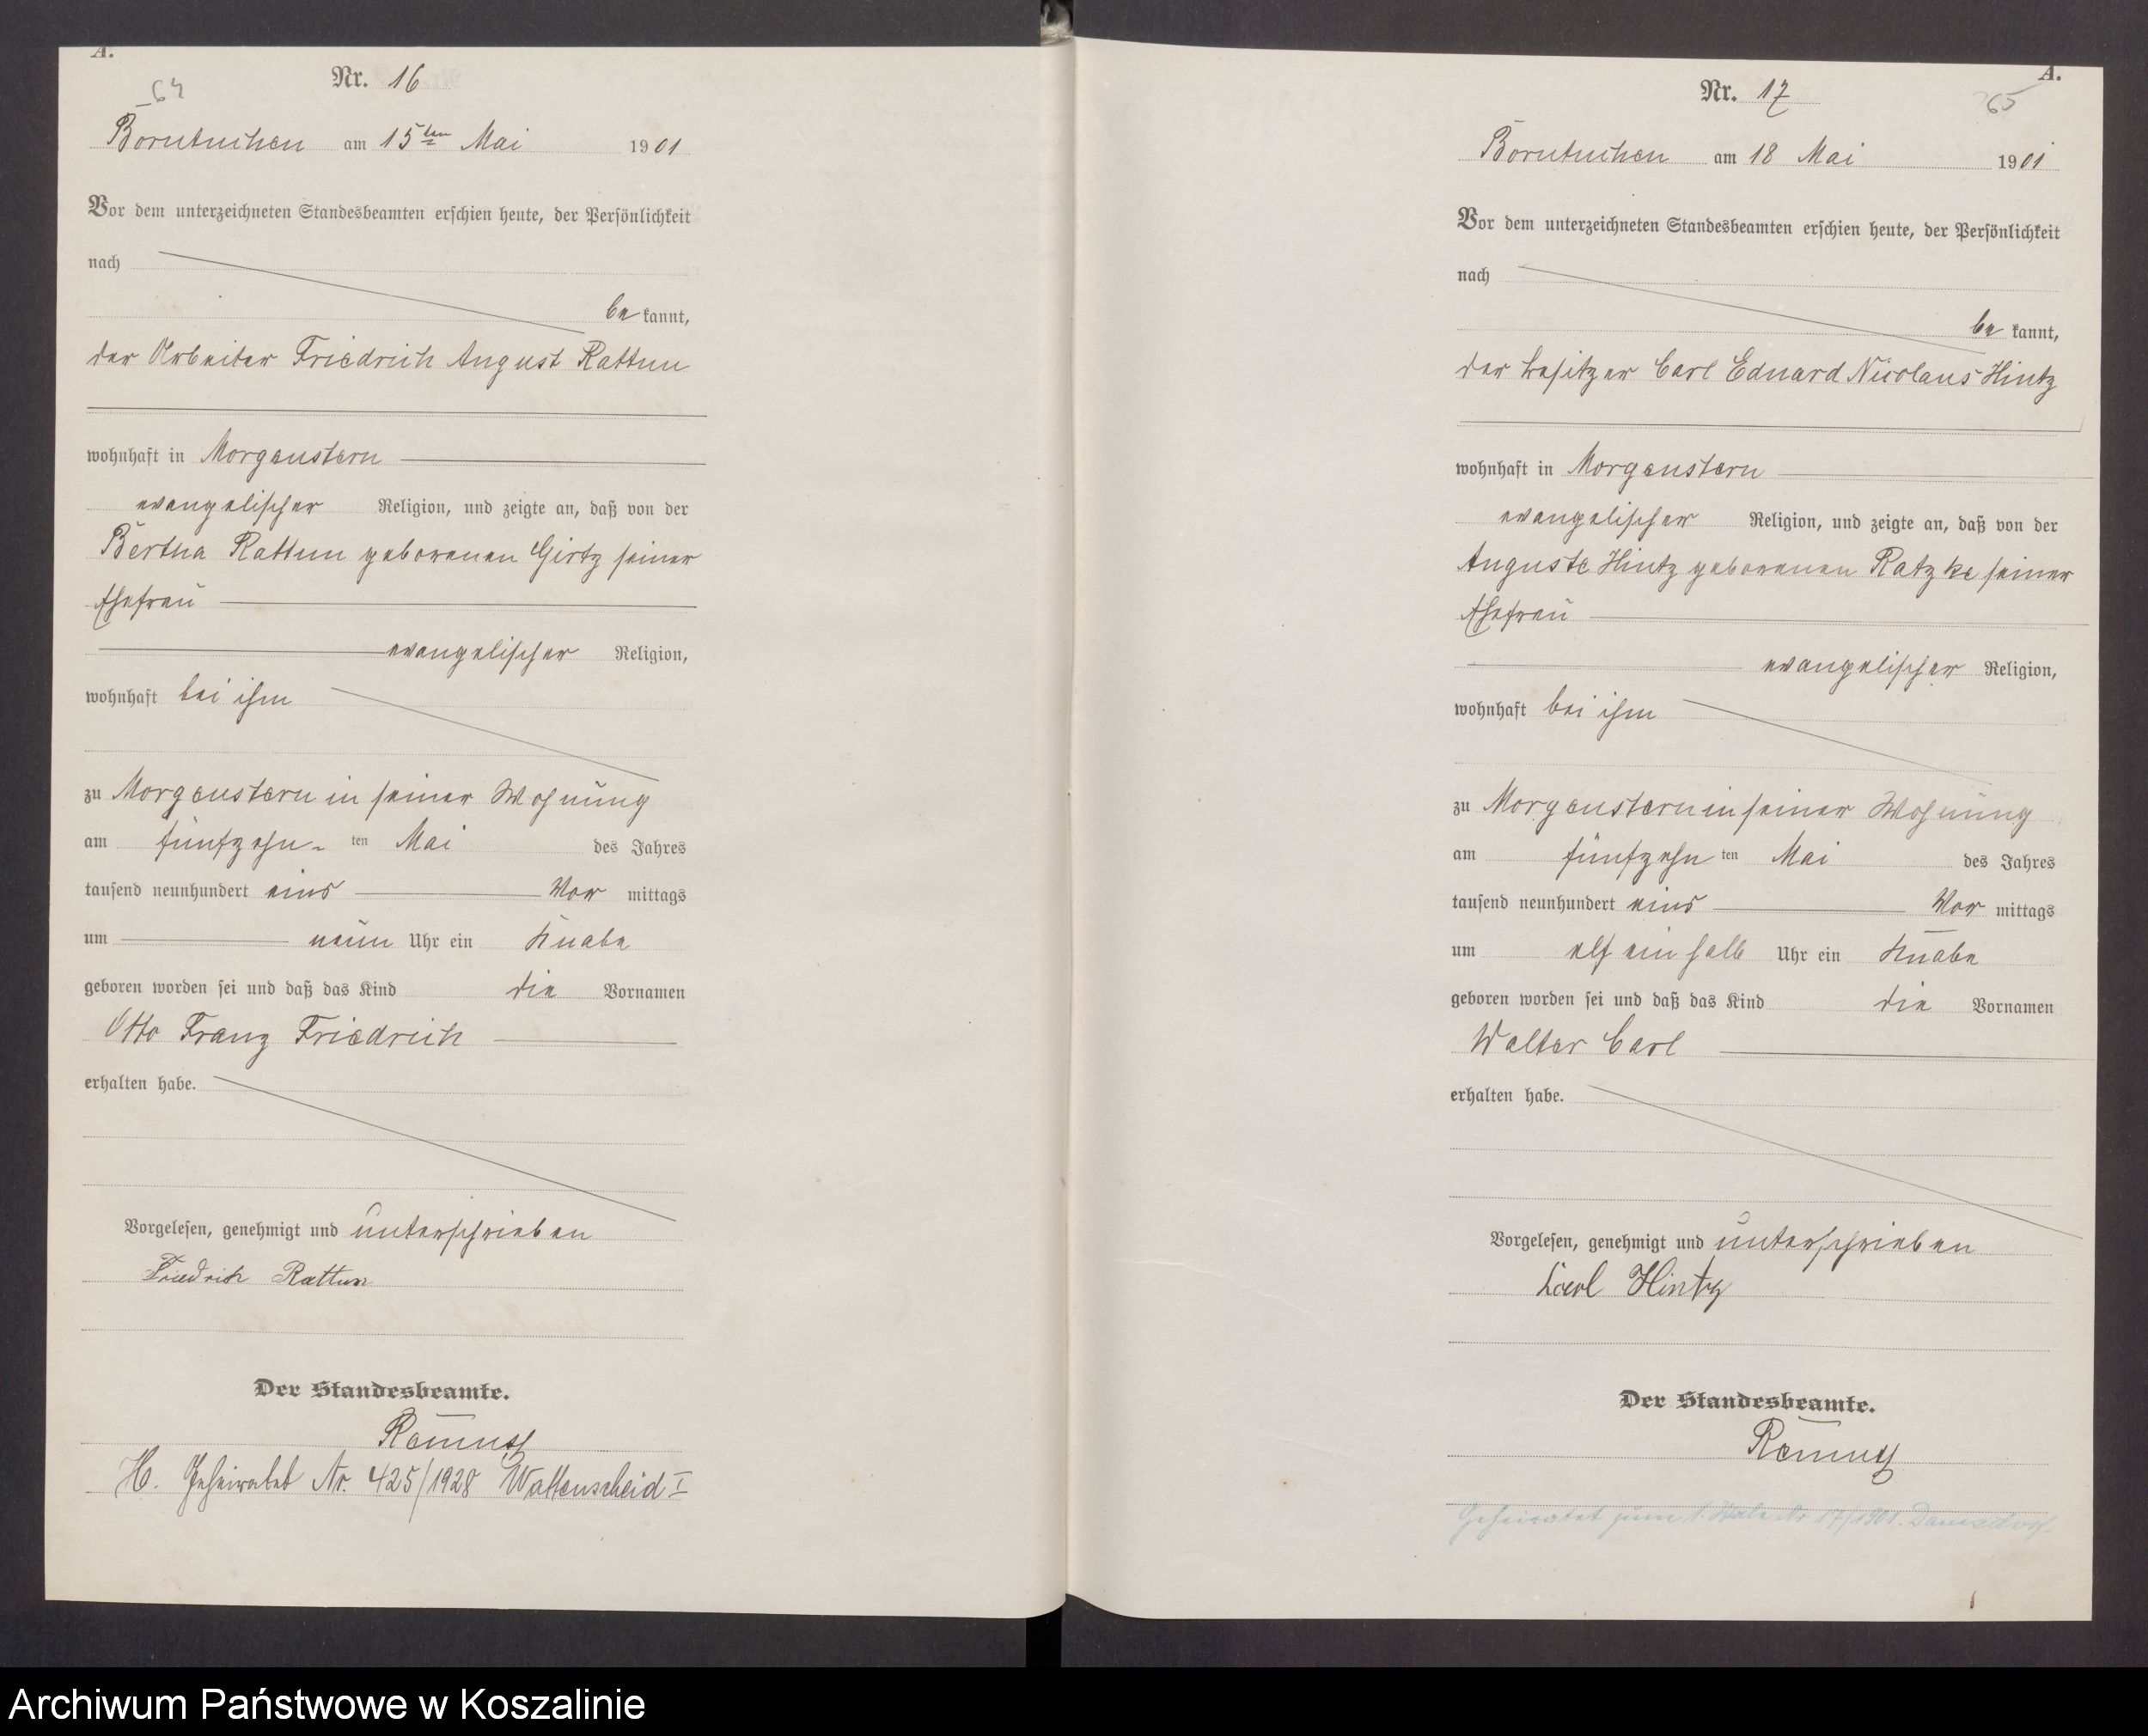 A.
64
Nr. 16
Borntuchen am 15ten Mai 1901
Vor dem unterzeichneten Standesbeamten erschien heute, der Persönlichkeit
nach
be kannt,
der Arbeiter Friedrich August Rattun
wohnhaft in Morgenstern
evangelischer Religion, und zeigte an, daß von der
Bertha Rattun geborenen Girtz seiner
Ehefrau
evangelischer Religion,
wohnhaft bei ihm
zu Morgenstern in seiner Wohnung
am fünfzehn- ten Mai des Jahres
tausend neunhundert eins Vor mittags
um neun Uhr ein Knabe
geboren worden sei und daß das Kind die Vornamen
Otto Franz Friedrich
erhalten habe.
Vorgelesen, genehmigt und unterschrieben
Friedrich Rattun
Der Standesbeamte.
H. Geheiratet Nr. 425/1928 Wattenscheid I
A.
65
Nr. 17
Borntuchen am 18 Mai 1901
Vor dem unterzeichneten Standesbeamten erschien heute, der Persönlichkeit
nach
be kannt,
der Besitzer Carl Eduard Nicolaus Hintz
wohnhaft in Morgenstern
evangelischer Religion, und zeigte an, daß von der
Auguste Hintz geborenen Ratzke seiner
Ehefrau
evangelischer Religion,
wohnhaft bei ihm
zu Morgenstern in seiner Wohnung
am fünfzehn ten Mai des Jahres
tausend neunhundert eins Vor mittags
um elf ein halb Uhr ein Knabe
geboren worden sei und daß das Kind die Vornamen
Walter Carl
erhalten habe.
Vorgelesen, genehmigt und unterschrieben
Carl Hintz
Der Standesbeamte.
Geheiratet zum 1. Male Nr
Archiwum Państwowe w Koszalinie